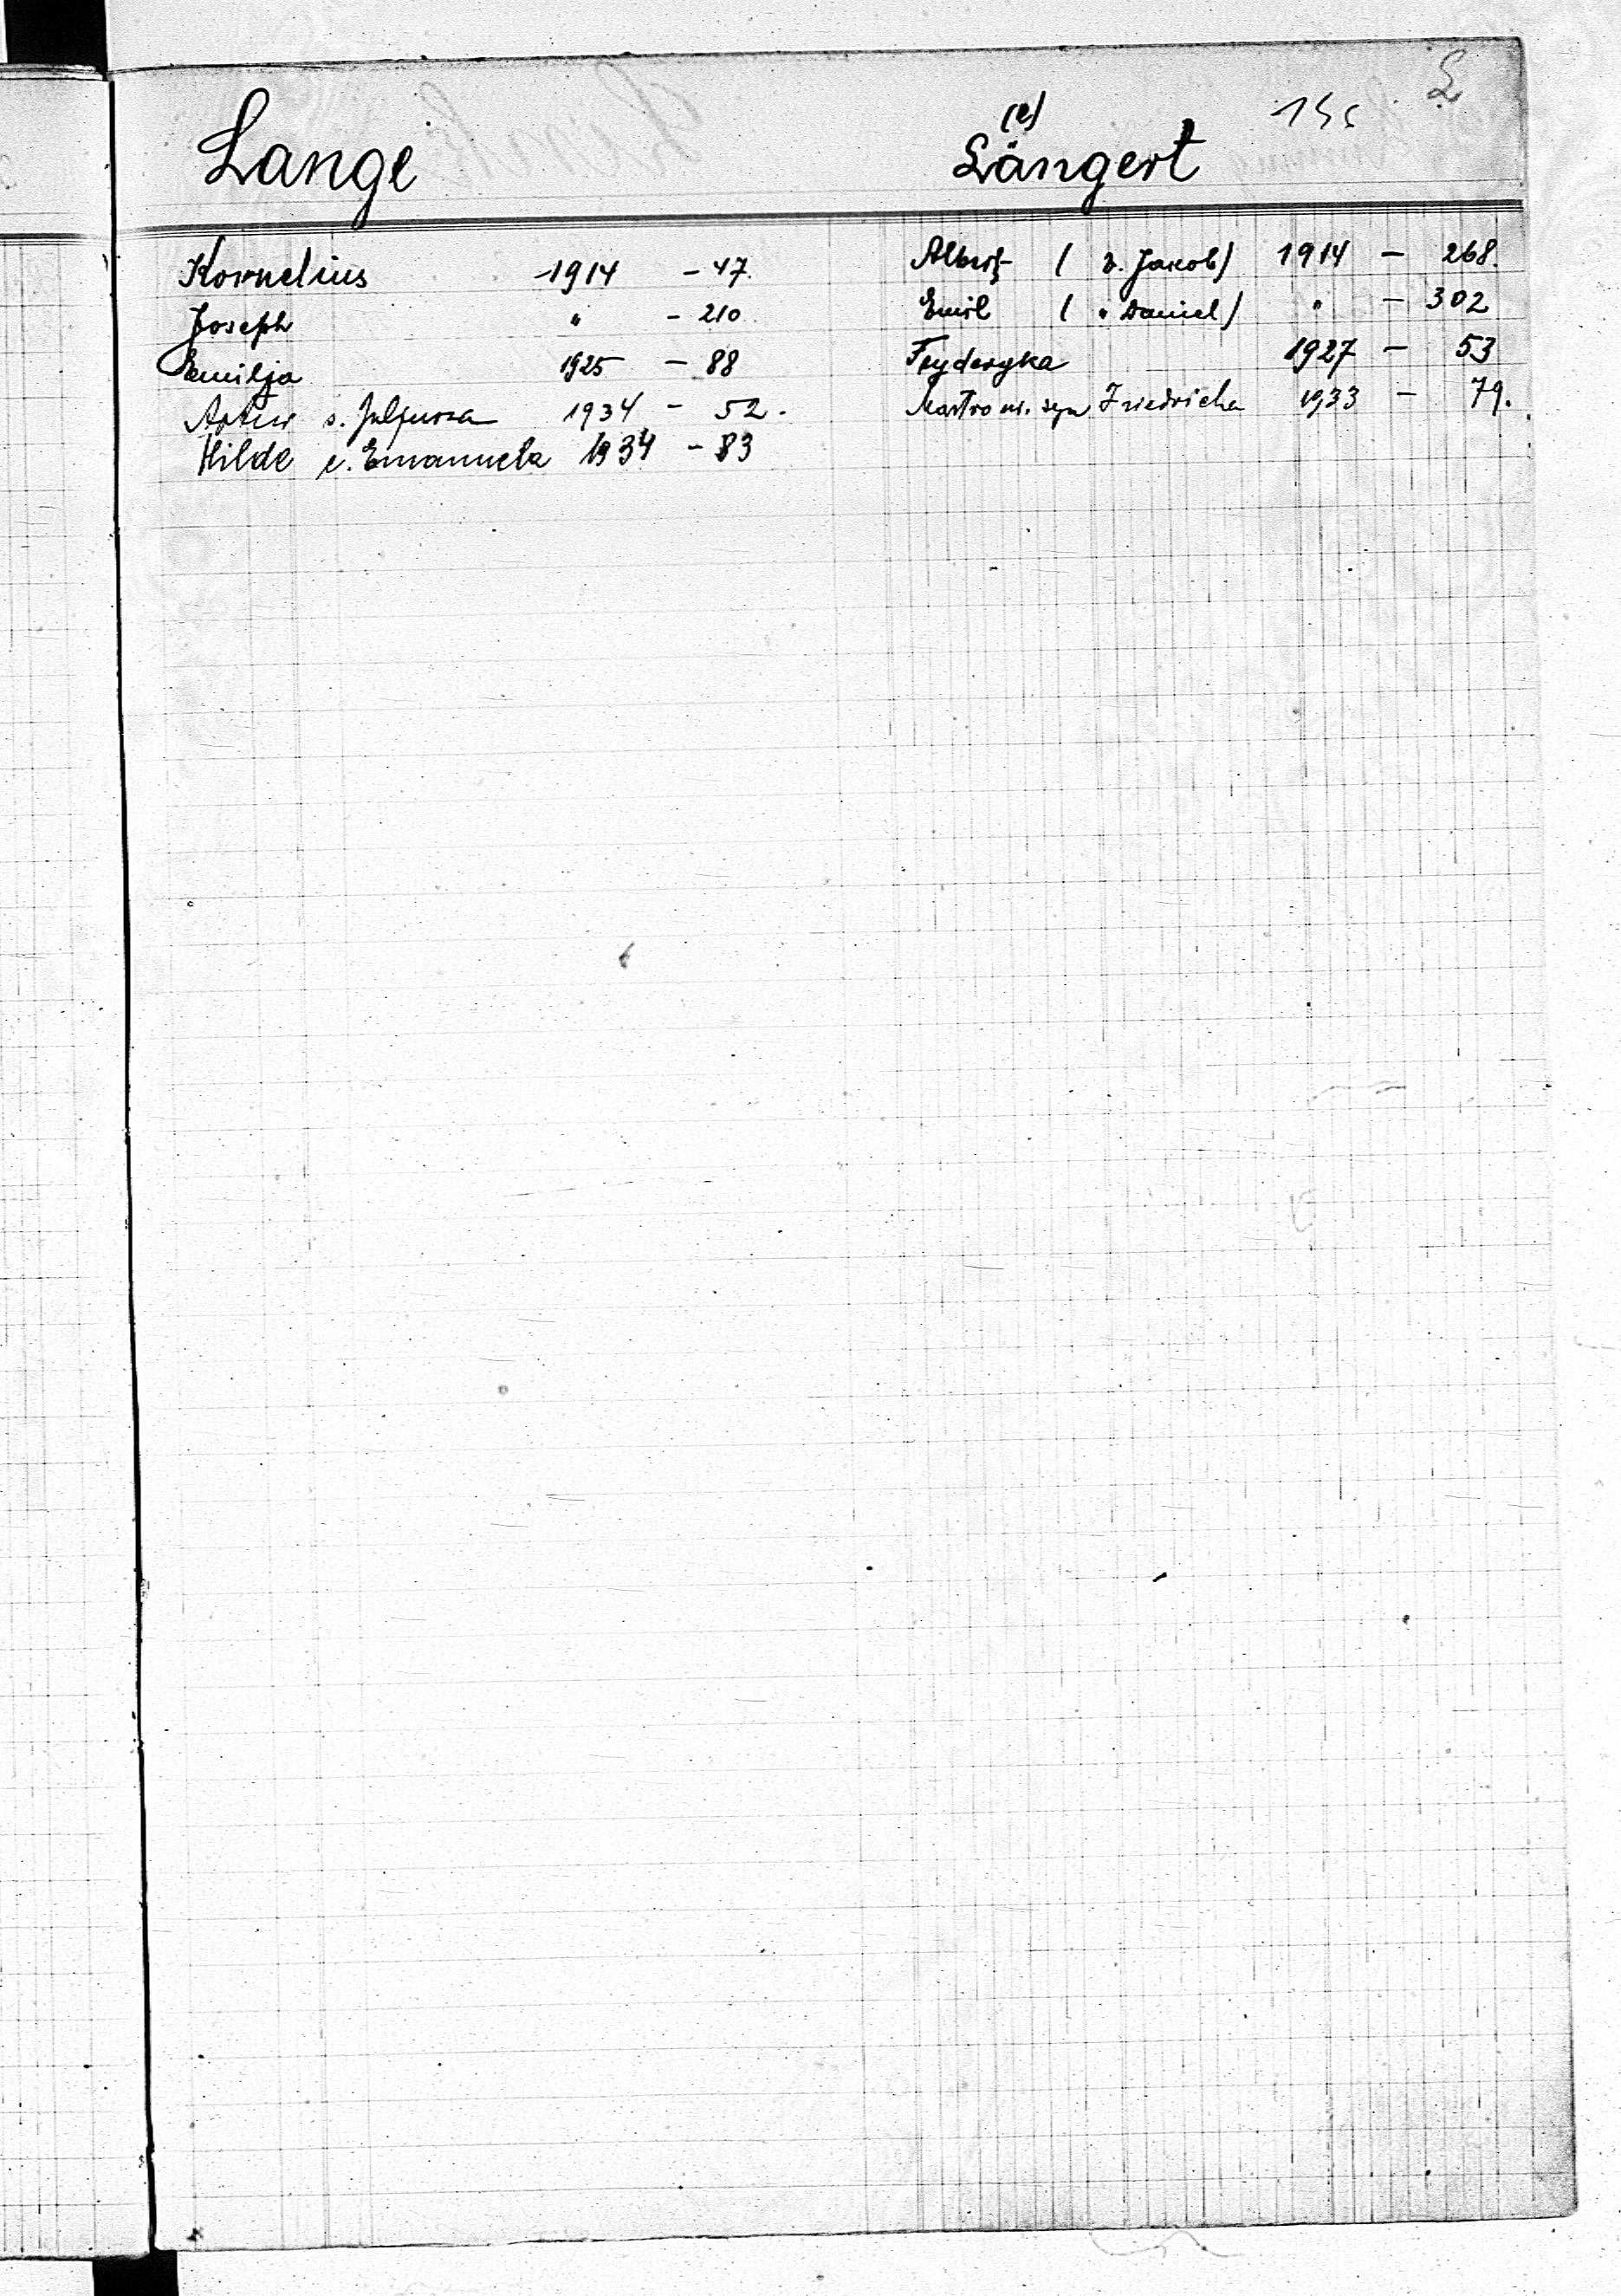 L
Lange
Längert (e)
Kornelius 1914 - 47.
Joseph " - 210
Emilja 1925 - 88
Artur s. Juljusza 1934 - 52.
Hilde c. Emanuela 1934 - 83
Albert ( v. Jakob) 1914 - 268.
Emil ( " Daniel) " - 302
Fryderyka 1927 - 53
syn Friedricha 1933 - 79.